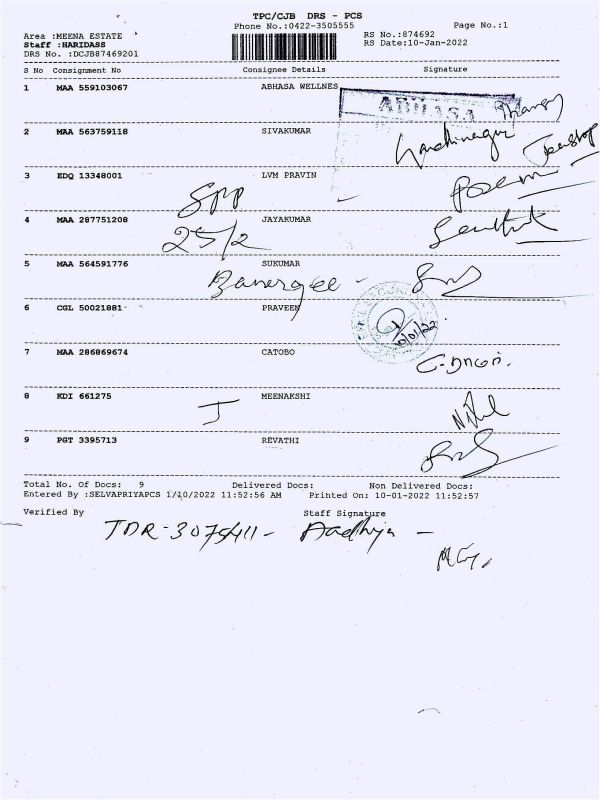 TPC/CJB DRS - PCS
Phone No.:0422-3505555 Page No.:1
Area :MEENA ESTATE RS No.:874692
Staff :HARIDASS RS Date:10-Jan-2022
DRS No. :DCJB87469201
S No Consignment No Consignee Details Signature
1 MAA 559103067 ABHASA WELLNES
ABHASA
2 MAA 563759118 SIVAKUMAR
3 EDQ 13348001 LVM PRAVIN
4 MAA 287751208 JAYAKUMAR
25/2
5 MAA 564591776 SUKUMAR
Banergee -
6 CGL 50021881 PRAVEEN
10/01/22
7 MAA 286869674 CATOBO
8 KDI 661275 MEENAKSHI
J
9 PGT 3395713 REVATHI
Total No. Of Docs: 9 Delivered Docs: Non Delivered Docs:
Entered By :SELVAPRIYAPCS 1/10/2022 11:52:56 AM Printed On: 10-01-2022 11:52:57
Verified By Staff Signature
Aadhiya -